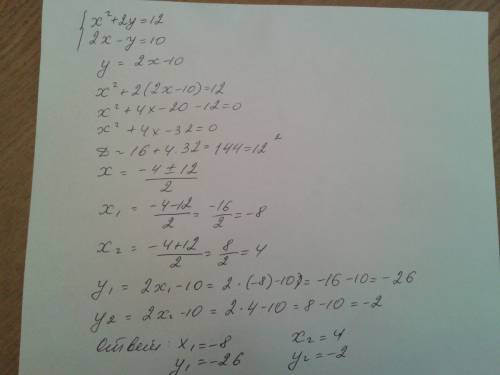 { x² + 2y = 12
2x - y = 10
y = 2x - 10
x² + 2(2x - 10) = 12
x² + 4x - 20 - 12 = 0
x² + 4x - 32 = 0
D = 16 + 4·32 = 144 = 12²
x = (-4 ± 12)/2
x₁ = (-4 - 12)/2 = -16/2 = -8
x₂ = (-4 + 12)/2 = 8/2 = 4
y₁ = 2x₁ - 10 = 2·(-8) - 10 = -16 - 10 = -26
y₂ = 2x₂ - 10 = 2·4 - 10 = 8 - 10 = -2
Ответ: x₁ = -8 x₂ = 4
y₁ = -26 y₂ = -2